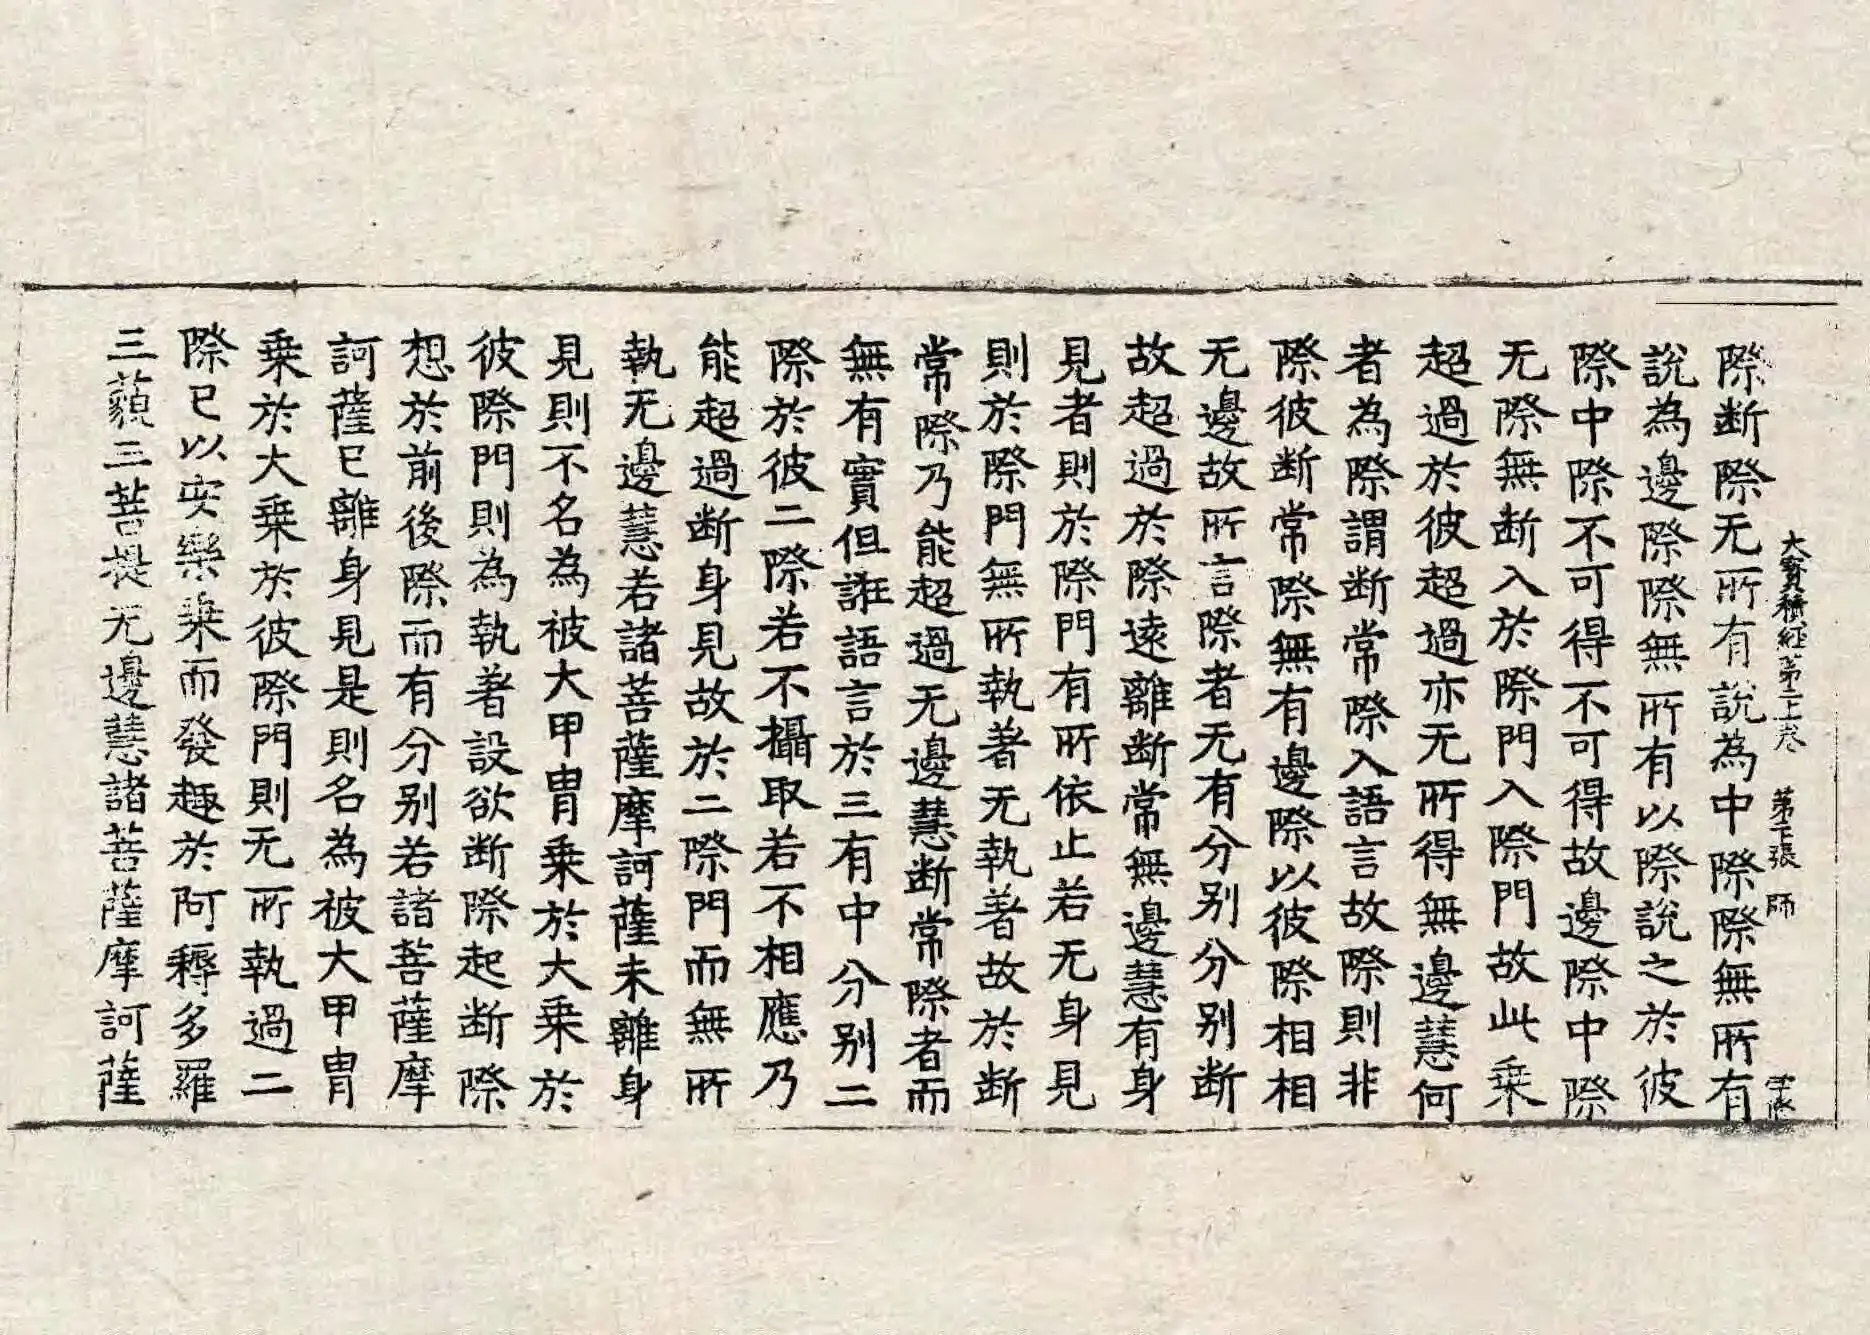 大寶積經第二十卷 第十張 師
際斷際无所有說為中際際無所有
說為邊際際無所有以際說之於彼
際中際不可得不可得故邊際中際
无際無斷入於際門入際門故此乗
超過於彼超過亦无所得無邊慧何
者為際謂斷常際入語言故際則非
際彼斷常際無有邊際以彼際相相
无邊故所言際者无有分別分別斷
故超過於際遠離斷常無邊慧有身
見者則於際門有所依止若无身見
則於際門無所執著无執著故於斷
常際乃能超過无邊慧斷常際者而
無有實但誑語言於三有中分別二
際於彼二際若不攝取若不相應乃
能超過斷身見故於二際門而無所
執无邊慧若諸菩薩摩訶薩未離身
見則不名為被大甲冑乗於大乗於
彼際門則為執著設欲斷際起斷際
想於前後際而有分別若諸菩薩摩
訶薩已離身見是則名為被大甲冑
乗於大乗於彼際門則无所執過二
際已以安樂乗而發趣於阿耨多羅
三藐三菩提无邊慧諸菩薩摩訶薩